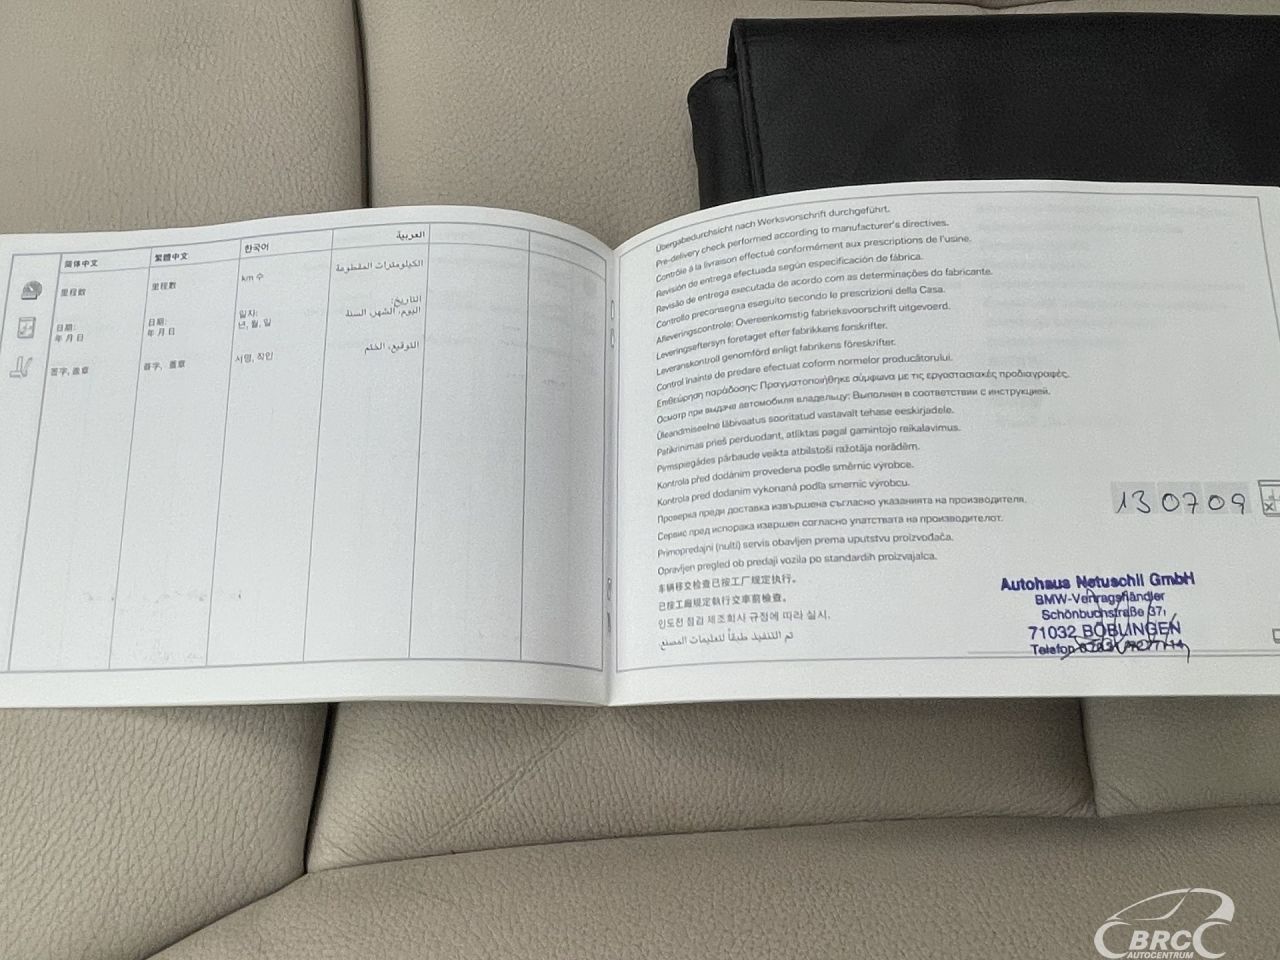 简体中文
繁體中文
한국어
العربية
里程数
里程數
km 수
الكيلومترات المقطوعة
日期:
年 月 日
日期:
年 月 日
일자:
년, 월, 일
التاريخ:
اليوم، الشهر، السنة
签字, 盖章
簽字, 蓋章
서명, 직인
التوقيع، الختم
Übergabedurchsicht nach Werksvorschrift durchgeführt.
Pre-delivery check performed according to manufacturer's directives.
Contrôle à la livraison effectué conformément aux prescriptions de l'usine.
Revisión de entrega efectuada según especificación de fábrica.
Revisão de entrega executada de acordo com as determinações do fabricante.
Controllo preconsegna eseguito secondo le prescrizioni della Casa.
Afleveringscontrole: Overeenkomstig fabrieksvoorschrift uitgevoerd.
Leveringseftersyn foretaget efter fabrikkens forskrifter.
Leveranskontroll genomförd enligt fabrikens föreskrifter.
Control înainte de predare efectuat coform normelor producătorului.
Επιθεώρηση παράδοσης: Πραγματοποιήθηκε σύμφωνα με τις εργοστασιακές προδιαγραφές.
Осмотр при выдаче автомобиля владельцу: Выполнен в соответствии с инструкцией.
Üleandmiseelne läbivaatus sooritatud vastavalt tehase eeskirjadele.
Patikrinimas prieš perduodant, atliktas pagal gamintojo reikalavimus.
Pirmspiegādes pārbaude veikta atbilstoši ražotāja norādēm.
Kontrola před dodáním provedena podle směrnic výrobce.
Kontrola pred dodaním vykonaná podľa smerníc výrobcu.
Проверка преди доставка извършена съгласно указанията на производителя.
Сервис пред испорака извершен согласно упатствата на производителот.
Primopredajni (nulti) servis obavljen prema uputstvu proizvođača.
Opravljen pregled ob predaji vozila po standardih proizvajalca.
车辆移交检查已按工厂规定执行。
已按工廠規定執行交車前檢查。
인도전 점검 제조회사 규정에 따라 실시.
تم التنفيذ طبقاً لتعليمات المصنع.
130709
Autohaus Netuschil GmbH
BMW-Vertragshändler
Schönbuchstraße 37,
71032 BÖBLINGEN
Telefon
BRC
AUTOCENTRUM